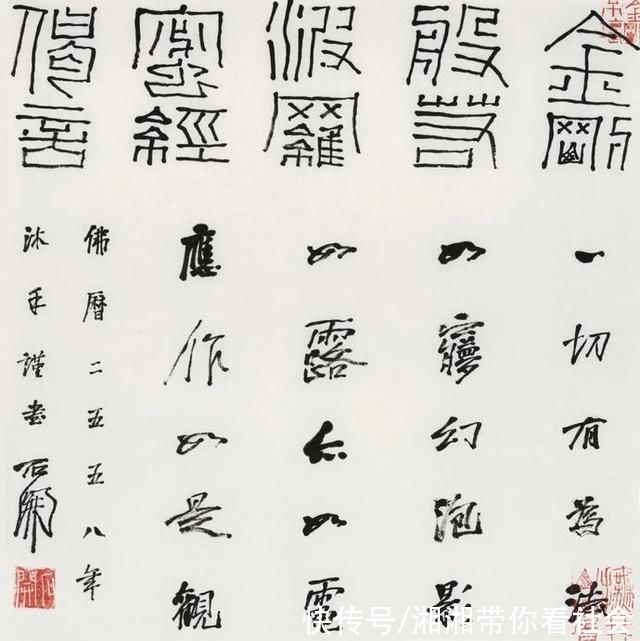 金剛
般若
波羅
蜜經
偈言
一切有為法
如夢幻泡影
如露亦如電
應作如是觀
佛曆二五五八年
沐手謹書石開
快传号/湘湘带你看社会